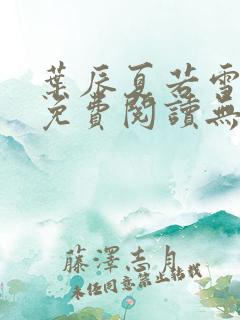 葉辰夏若雪
免費閱讀無
藤澤志月
未經同意禁止轉載